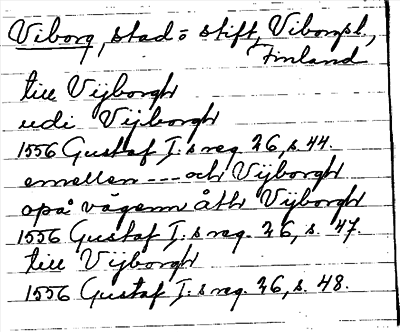 Viborg, stad o stift, Viborgs l.,
Finland
till Vijborgh
udi Vijborgh
1556 Gustaf I:s reg. 26, s. 44.
emellen --- och Vijborgh
opå vägenn åth Vijborgh
1556 Gustaf I:s reg. 26, s. 47.
till Vijborgh
1556 Gustaf I:s reg. 26, s. 48.